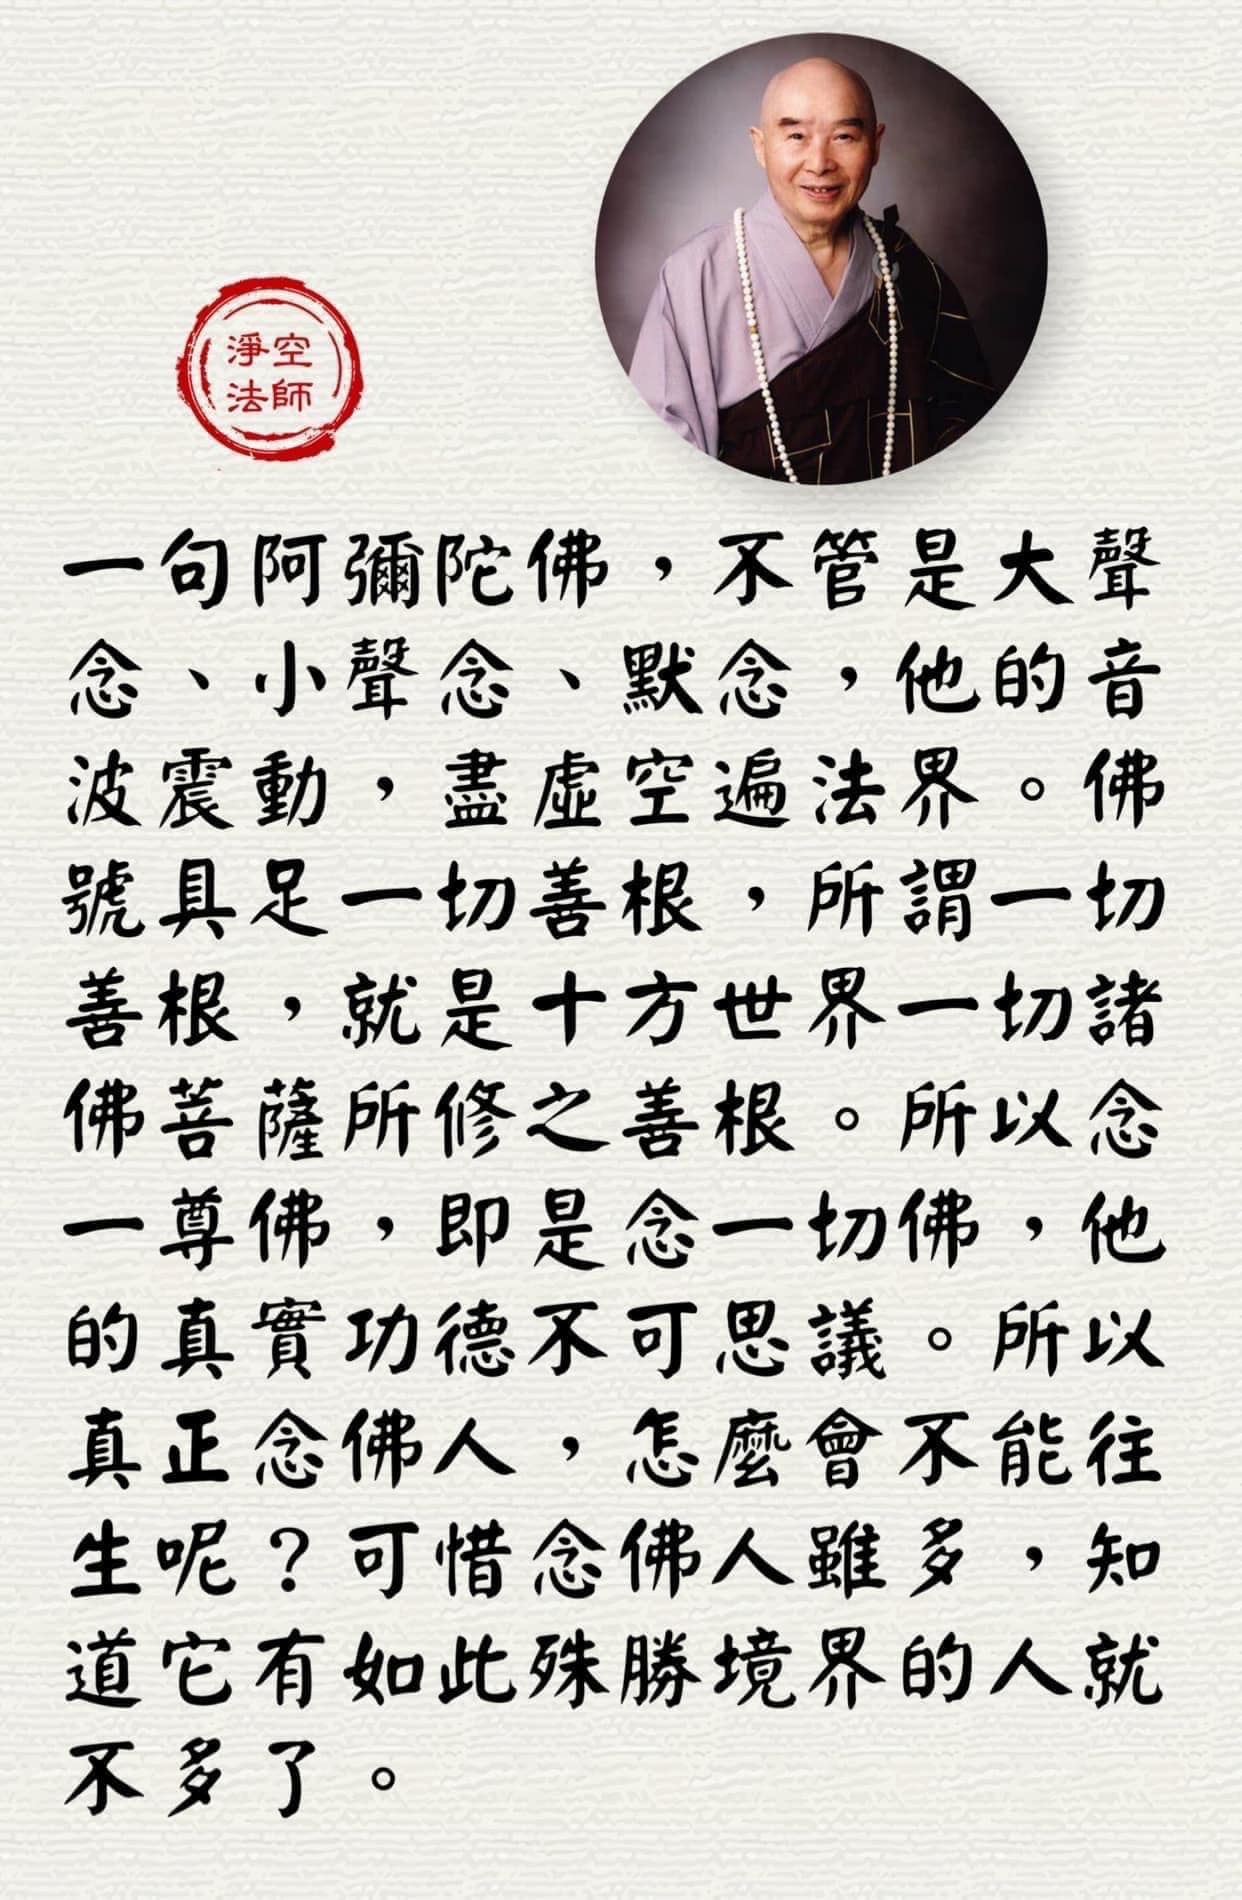 淨空
法師
一句阿彌陀佛，不管是大聲
念、小聲念、默念，他的音
波震動，盡虛空遍法界。佛
號具足一切善根，所謂一切
善根，就是十方世界一切諸
佛菩薩所修之善根。所以念
一尊佛，即是念一切佛，他
的真實功德不可思議。所以
真正念佛人，怎麼會不能往
生呢？可惜念佛人雖多，知
道它有如此殊勝境界的人就
不多了。